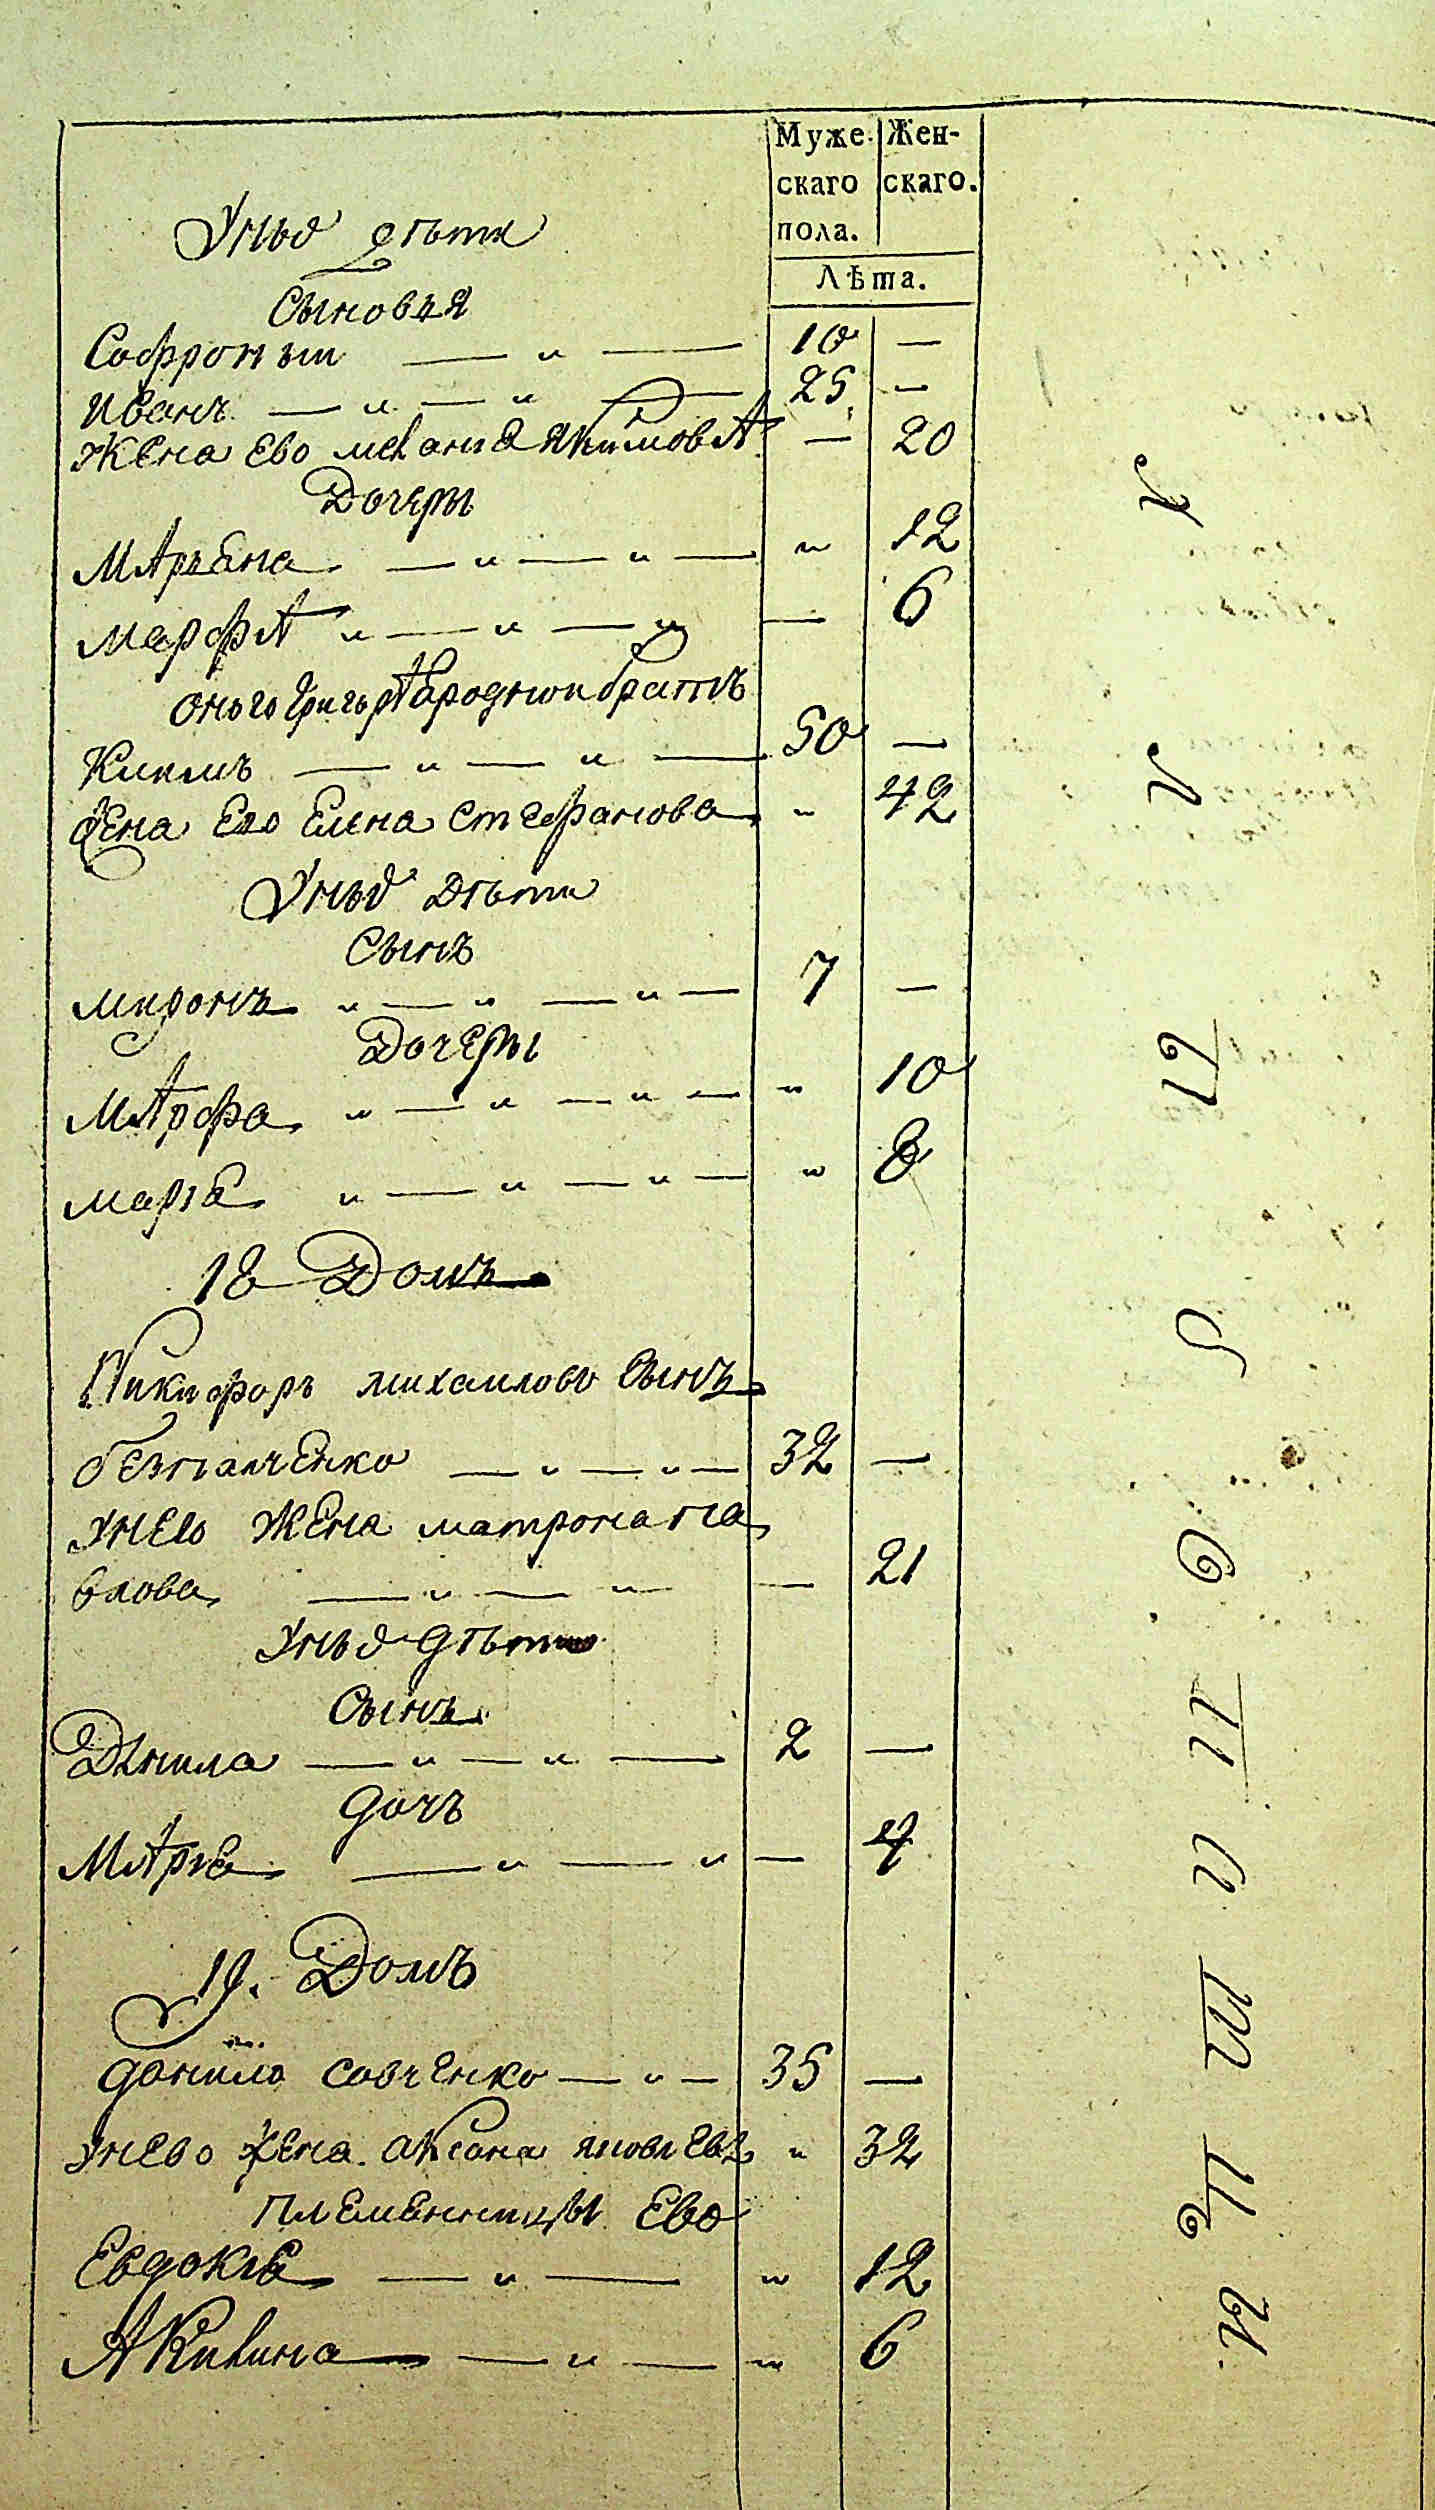 Муже- Жен-
скаго скаго.
пола.
Лѣта.
Унıѣ дѣти
Сыновья
Софронъ — „ — 10 —
Иванъ — „ — „ — 25 —
Жена Ево меланія Якимова — 20
Дочеры
Марьяна — „ — „ — „ 12
Марфа „ — „ — „ — 6
оного григорія родной братъ
Климъ — „ — „ — 50 —
Жена Его Елена Стефанова „ 42
Унıѣ дѣти
Сынъ
миронъ „ — „ — „ — 7 —
Дочеры
Марфа „ — „ — „ — „ 10
марія „ — „ — „ — „ 8
18 Домъ
Никифоръ михаиловъ Сынъ
безпалченко — „ — „ — 32 —
унего Жена матрона па
влова — „ — „ — 21
Унıѣ дѣти
Сынъ
Данила — „ — „ — 2 —
дочъ
Марія — „ — „ — 4
19. Домъ
данило савченко — „ — 35 —
унево жена аксана яковлева „ 32
племенницы Ево
Евдокія — „ — „ 12
Акилина — „ — „ 6